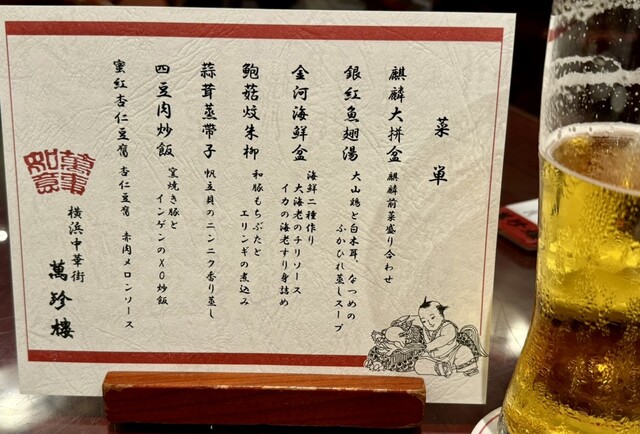 菜単
麒麟大拼盆 麒麟前菜盛り合わせ
銀紅魚翅湯 大山鶏と白木耳、なつめの
ふかひれ蒸しスープ
金河海鮮盆 海鮮二種作り
大海老のチリソース
イカの海老すり身詰め
鮑菇炆朱柳 和豚もちぶたと
エリンギの煮込み
蒜茸蒸帶子 帆立貝のニンニク香り蒸し
四豆肉炒飯 窯焼き豚と
インゲンのXO炒飯
蜜紅杏仁豆腐 杏仁豆腐 赤肉メロンソース
萬事如意
横浜中華街
萬珍樓